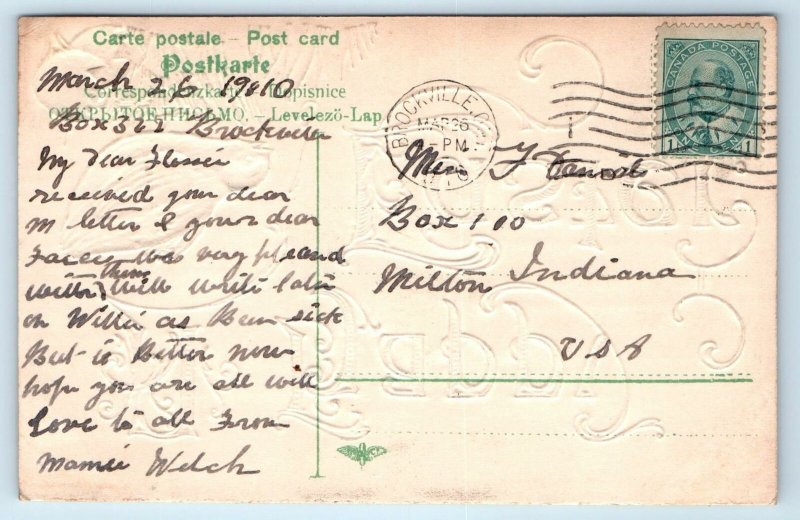 Carte postale – Post card
Postkarte
Correspondenzkarte – Dopisnice
ОТКРЫТОЕ ПИСЬМО. – Levelezö-Lap
March 26 1910
Box 322 Brockville
My Dear Flossie
received your dear
m letter & yours dear
Faces was very pleasd
with them will write later
on Willie as Been sick
But is Better now
hope you are all well
Love to all From
Mamie Welch
BROCKVILLE, ONT.
MAR 26
PM
10
CANADA POSTAGE
1 1
Miss F
Box 100
Milton Indiana
USA